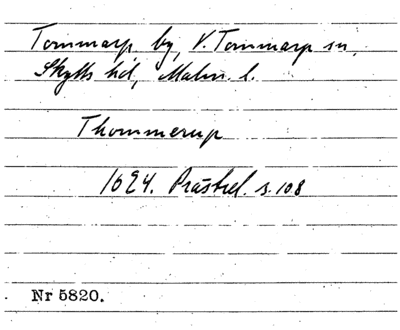 Tommarp by, V. Tommarp sn,
Skytts hd, Malm. l.
Thommerup
1624. Prästrel. s. 108
Nr 5820.